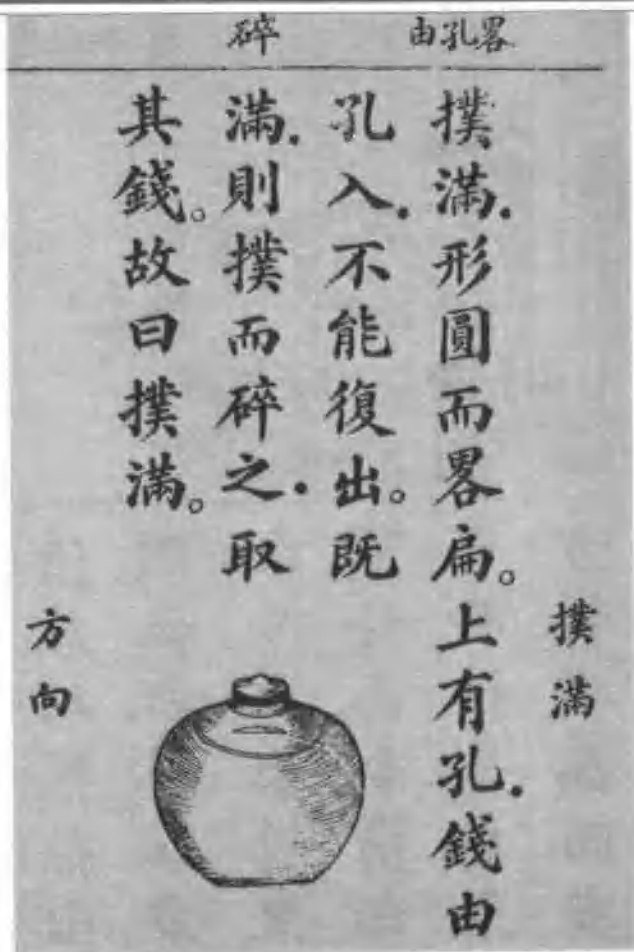 畧孔由
碎
撲滿
撲滿.形圓而畧扁。上有孔.錢由
孔入.不能復出。既
滿.則撲而碎之.取
其錢。故曰撲滿。
方向